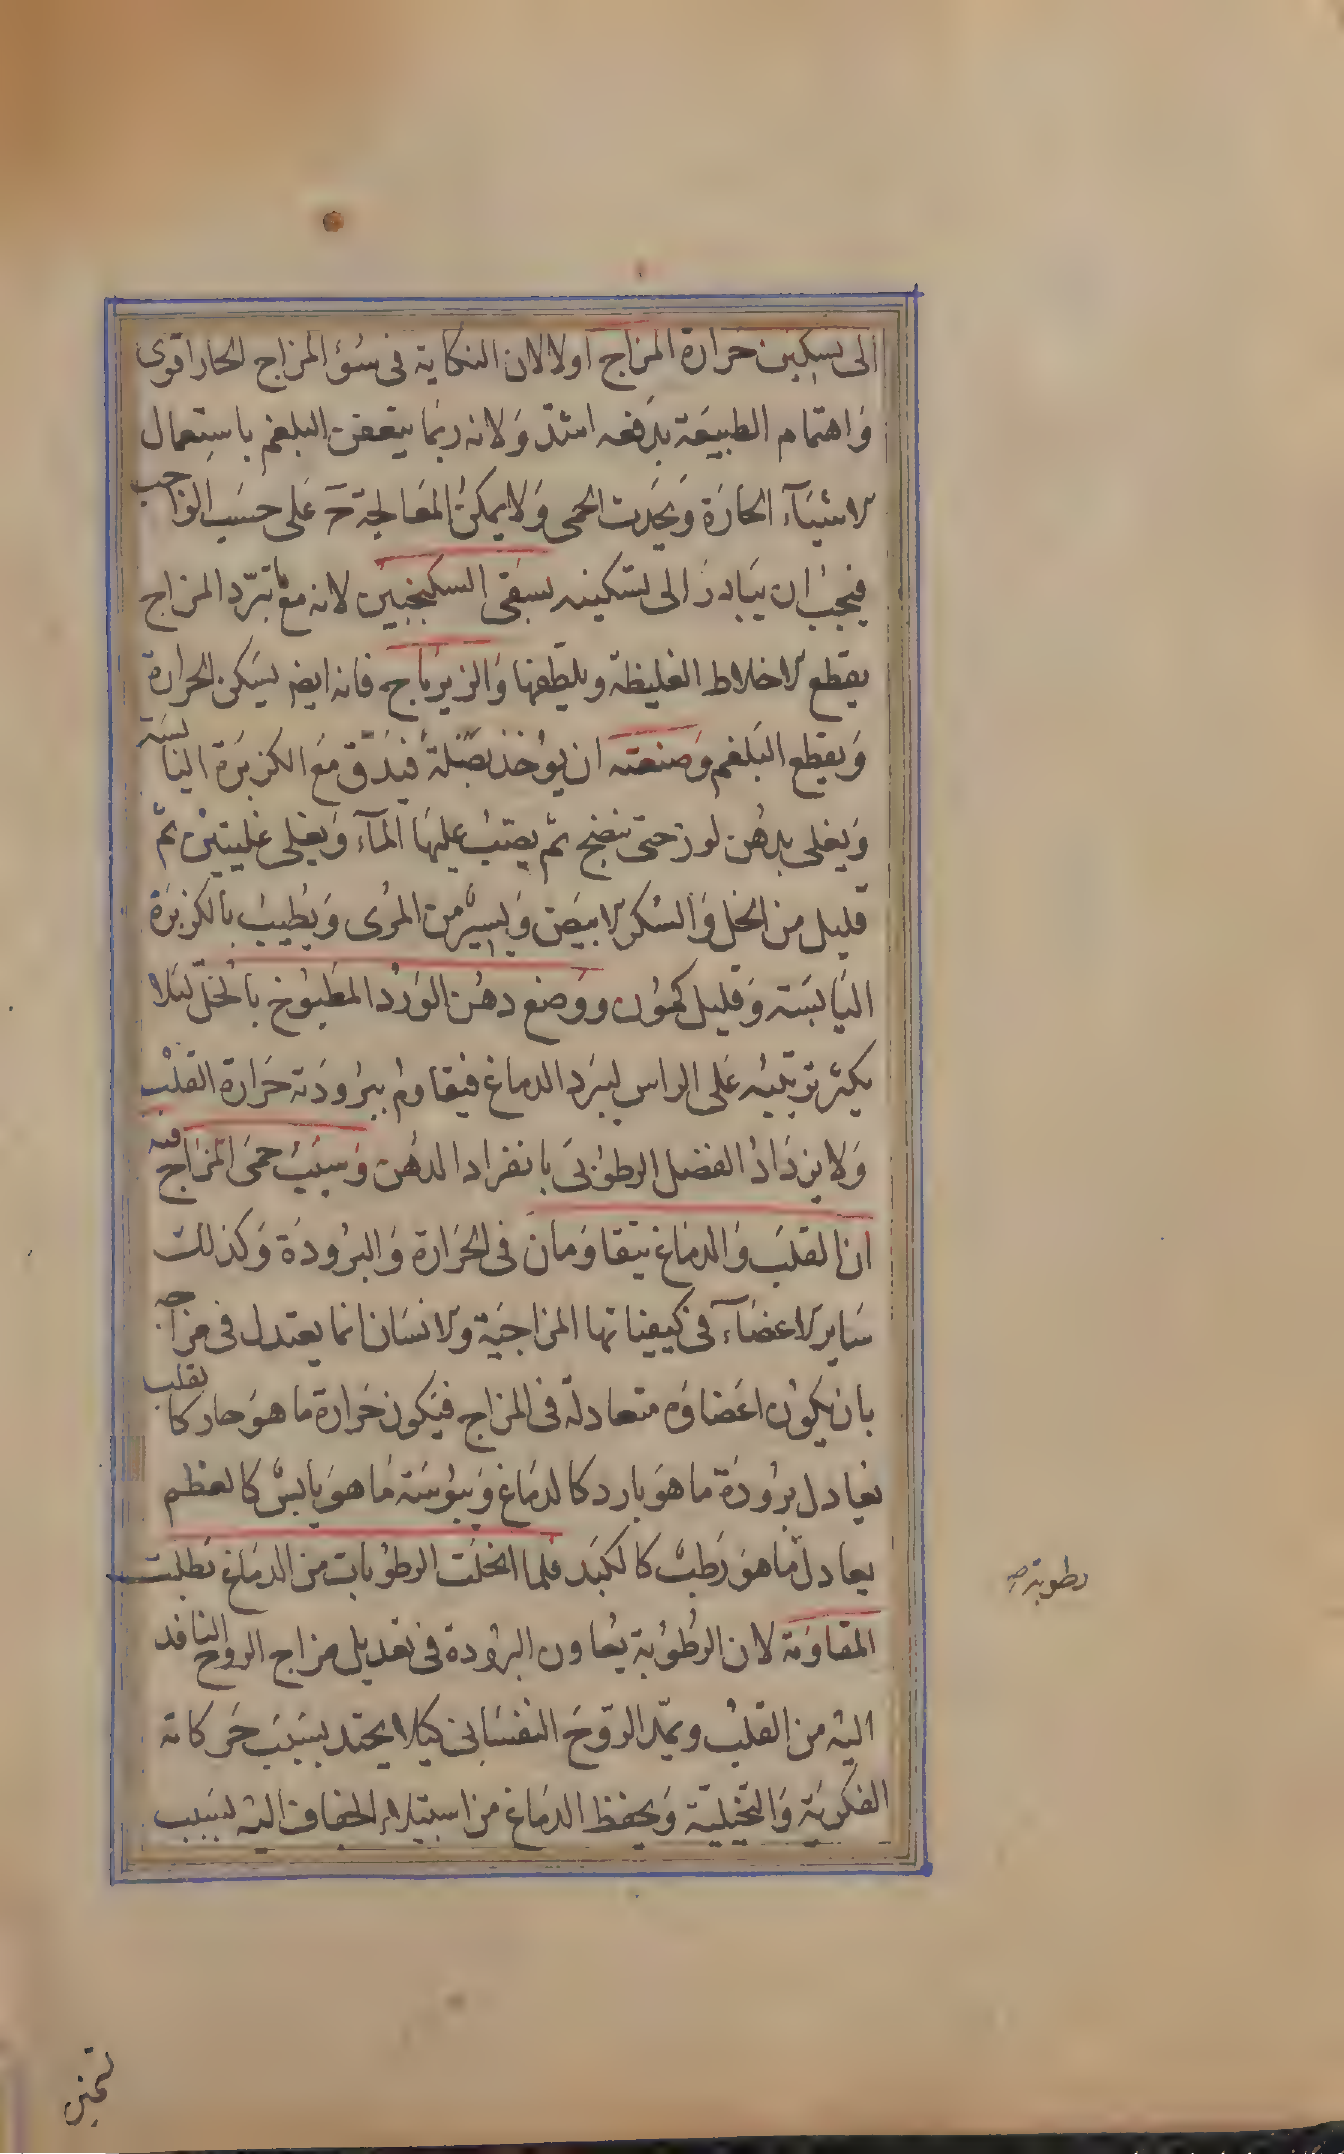 الى تسكين حرارة المزاج اولا لان النكاية فى سوء المزاج الحار اقوى
وَاهتمام الطبيعَة بدَفعه اشدّ وَلانه ربَما يتعفن البلغم باستعمال
الاشيَآء الحَارَة وَيحَدث الحمى وَلا يمكنُ المعَالجة حَ عَلى حسَب الواجب
فيجبُ ان يبَادرَ الى تسَكينه بسَقى السكنجبين لانه معَ ما تبرّد المزاج
يقطع الاخلاط الغليظة ويلطّفها وَالزيرباج فانه ايضا يسَكن الحرارة
وَيقطع البَلغم وَصنعَته ان يؤخذ بَصَلة فيدَق مَع الكزبرَة اليابسَة
وَيغلى بدهُن لوز حتى ينضج ثمّ يصَبُ عليهَا المآء وَيغلى غليتينْ ثمّ
قليل من الخل وَالسُكر الابيَض وَيسيرٌ من المرُى وَيُطيبُ بالكزبَرة
اليَابسَة وَقليل كمّون ووضع دهُن الوَرْد المطبُوخ بالخلّ لئلا
يكثر ترتيبُه عَلى الراس ليبَرد الدماغ فيقاومُ ببرُودَته حَرارة القَلبْ
وَلا يزدَادُ الفضل الرطوُبىَ بانفراد الدهُن وَسببُ حمىَ المزاج فيه
ان القلبَ وَالدماغ يتقاوَمان فى الحَرارة وَالبرُودَة وَكذلك
سَاير الاعضَآء فى كيفيَاتها المزاجيَة والانسَان انما يعتدل فى مزاجه
بان يكوُن اعَضاؤه متعادلة فى المزاج فيَكون حَرارة ما هوَ حار كالقلب
يعَادل برُودَة ما هوَ بارد كالدمَاغ وَيبوُسَة مَا هوَ يابسٌ كالعظم
يعادل مَا هوَ رَطبٌ كالكبَد فلما انحلَت الرطوُبات من الدمَاغ بَطلت
المقاوَمَة لان الرطُوبَة يعُاون البرُودة فى تعَديل مزاج الروح النافد
اليْه من القلبْ ويمّد الروّحَ النفسَانى كيلا يحتد بسَبَبَ حَركاته
الفكريَة وَالتخيليَة وَيحفظ الدمَاغ من استيلاء الجفاف اليْه لسَبب
رطوبته صح